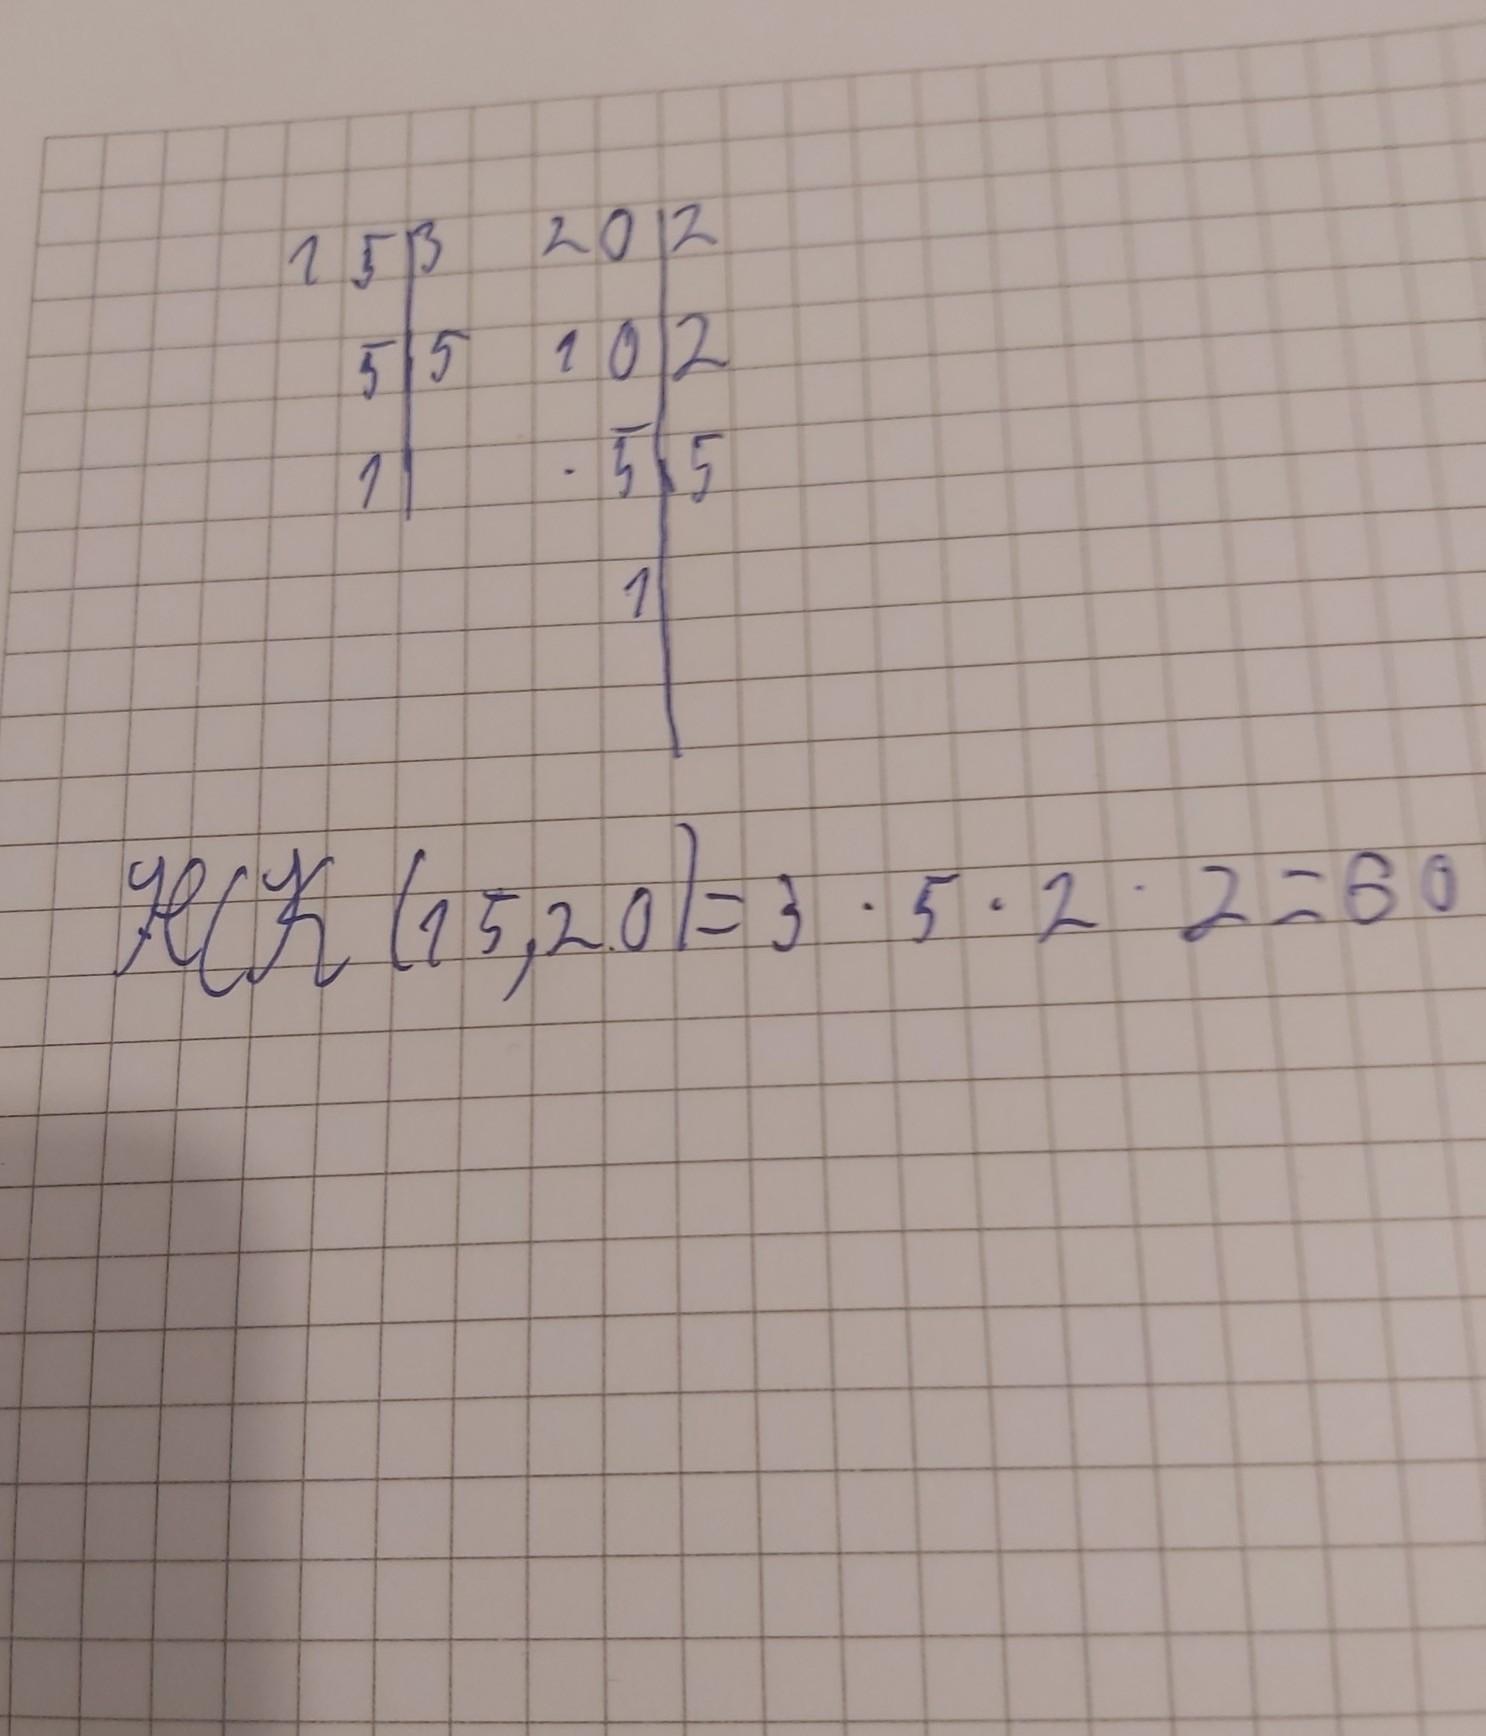 15|3 20|2
5|5 10|2
1| · 5|5
1|
НСК (15,20)=3 · 5 · 2 · 2=60